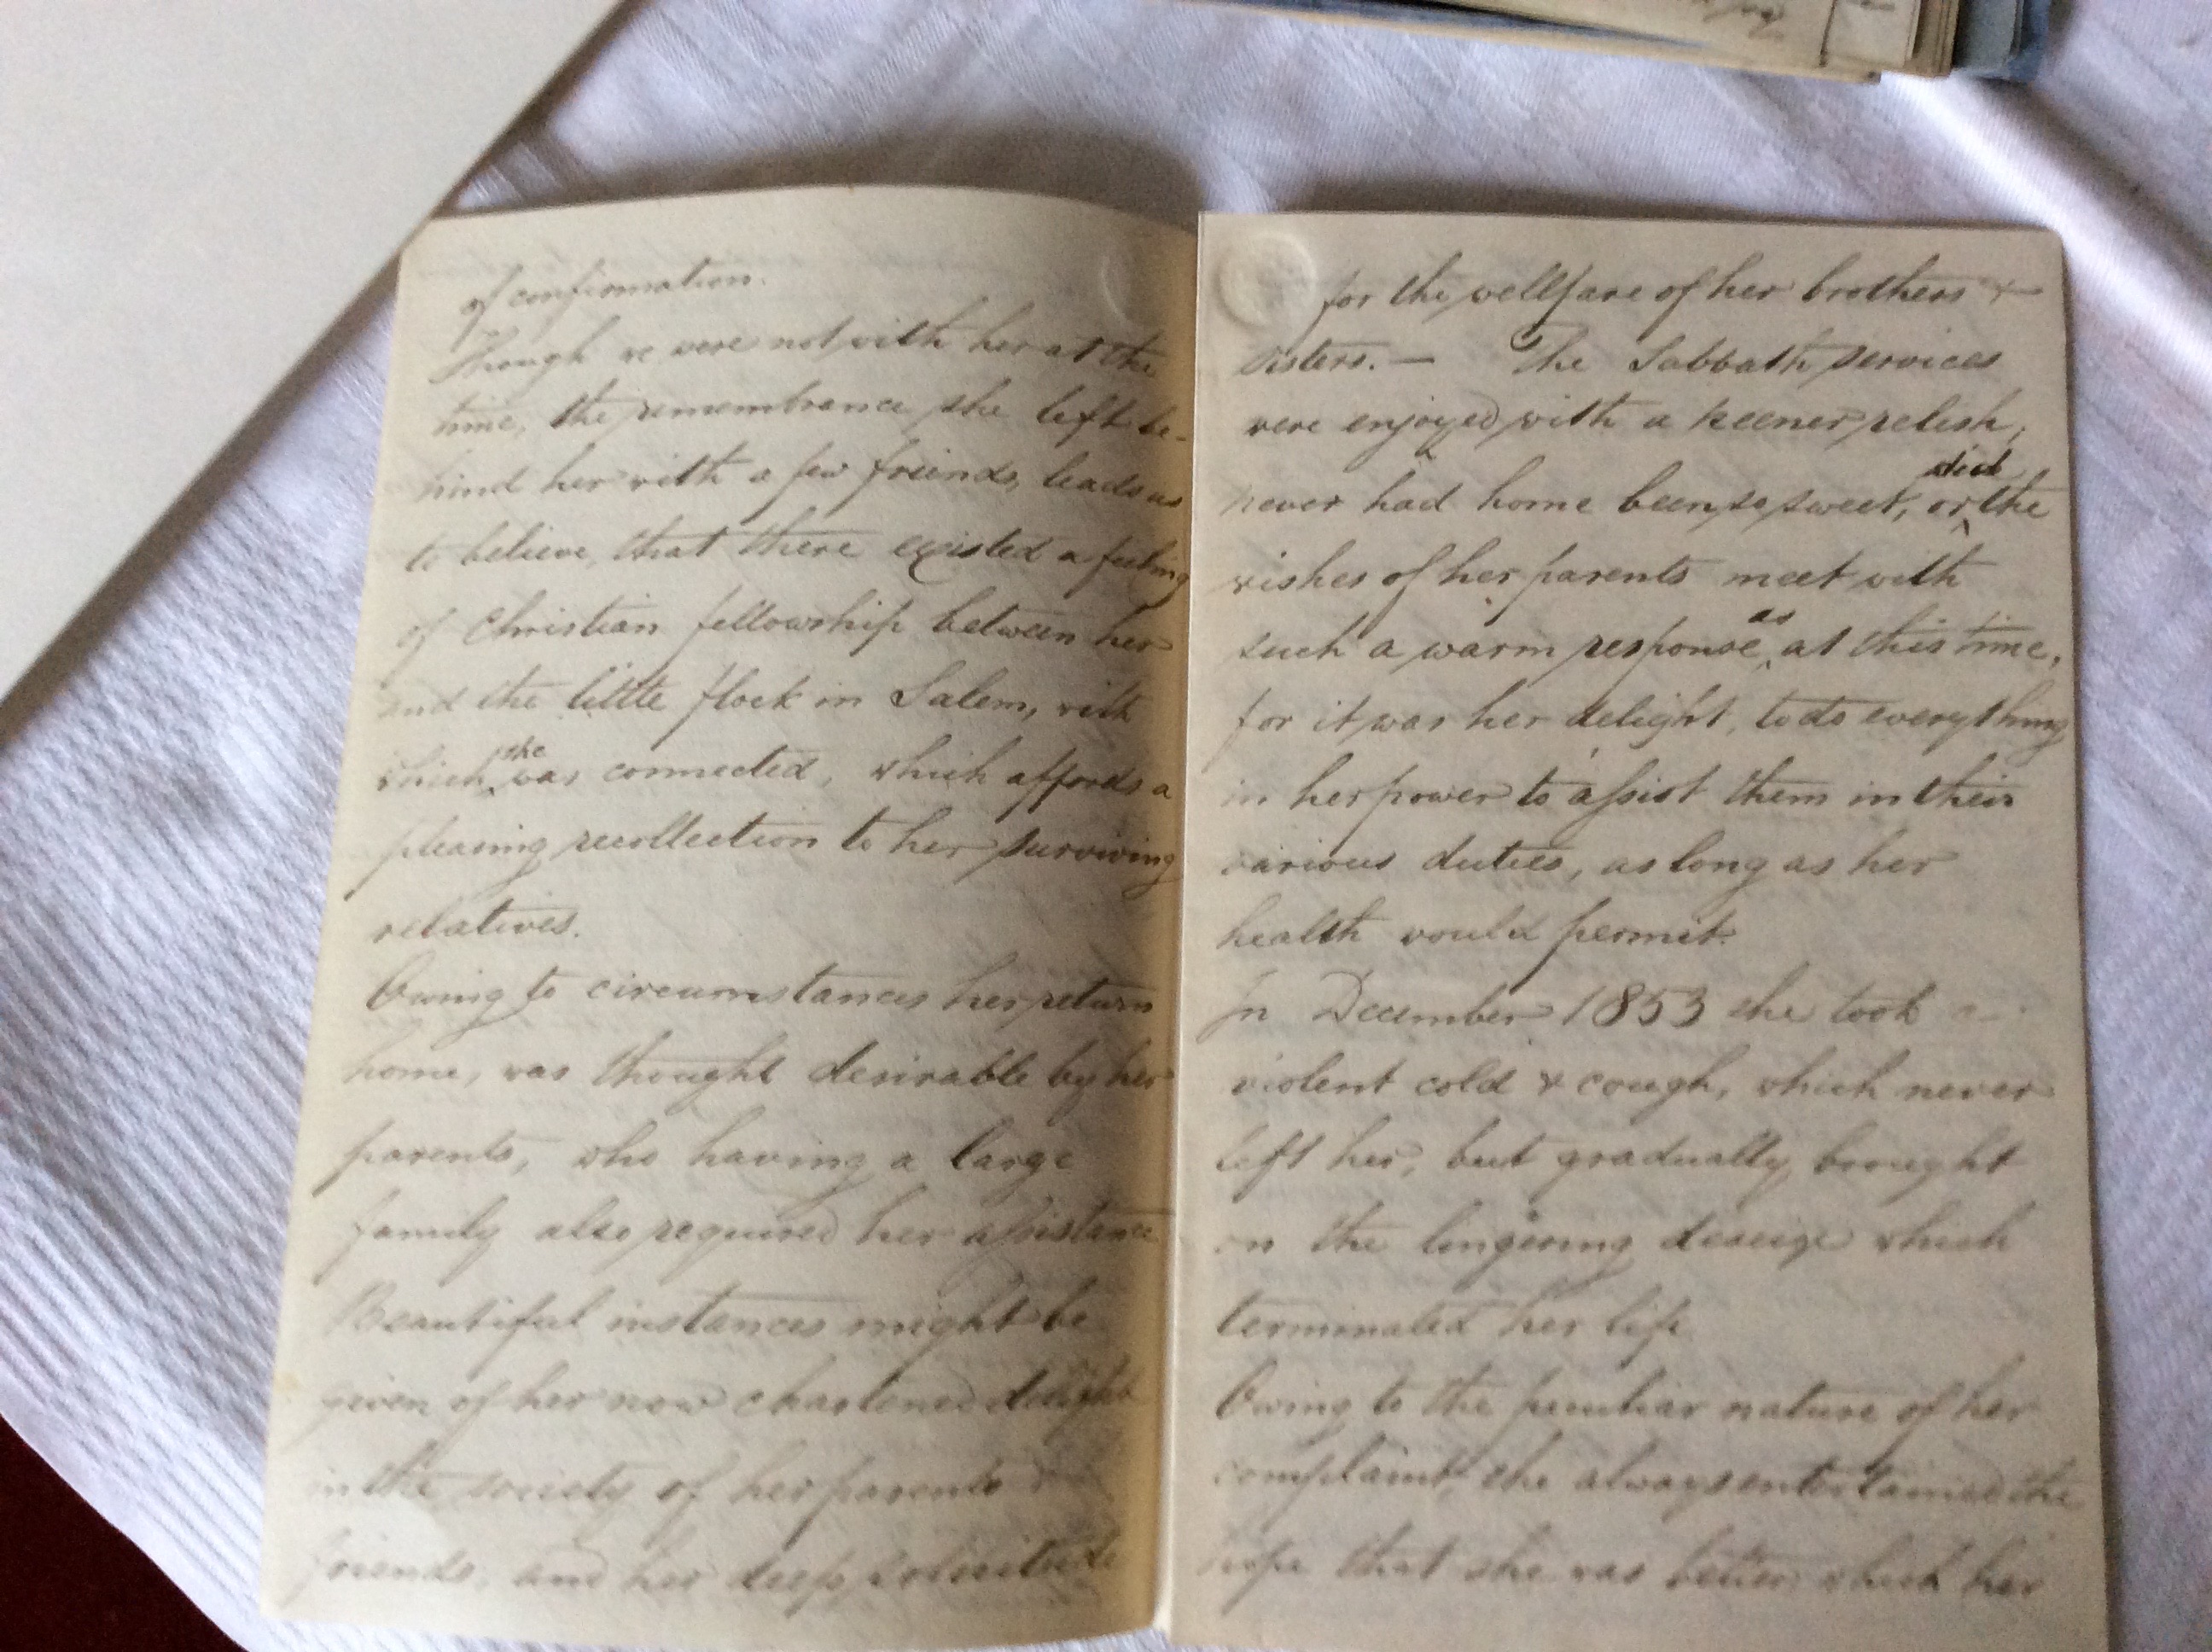 of confirmation.
Though we were not with her at the
time, the remembrance she left be-
hind her with a few friends, leads us
to believe, that there existed a feeling
of Christian fellowship between her
and the little flock in Salem, with
which she was connected, which affords a
pleasing recollection to her surviving
relatives.
Owing to circumstances her return
home, was thought desirable by her
parents, who having a large
family also required her assistance
Beautiful instances might be
given of her now chastened delight
in the society of her parents &
friends, and her deep solicitude
for the wellfare of her brothers &
sisters. — The Sabbath services
were enjoyed with a keener relish,
never had home been so sweet, or did the
wishes of her parents meet with
such a warm response as at this time,
for it was her delight, to do everything
in her power to assist them in their
various duties, as long as her
health would permit.
In December 1853 she took a
violent cold & cough, which never
left her, but gradually brought
on the lingering which
terminated her life
Owing to the peculiar nature of her
complaint, she always entertained the
hope that she was better which her